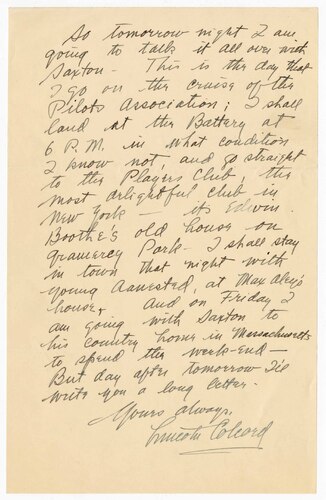 So tomorrow night I am
going to talk it all over with
Saxton - This is the day that
I go on the cruise of the
Pilots Association; I shall
land at the Battery at
6 P.M. in what condition
I know not, and go straight
to the Players Club, the
most delightful club in
New York - it's Edwin
Boothe's old house on
Gramercy Park - I shall stay
in town that night with
young at Max
house, and on Friday I
am going with Saxton to
his country home in Massachusetts
to spend the week-end -
But day after tomorrow I'll
write you a long letter.
Yours always,
Lincoln Colcord